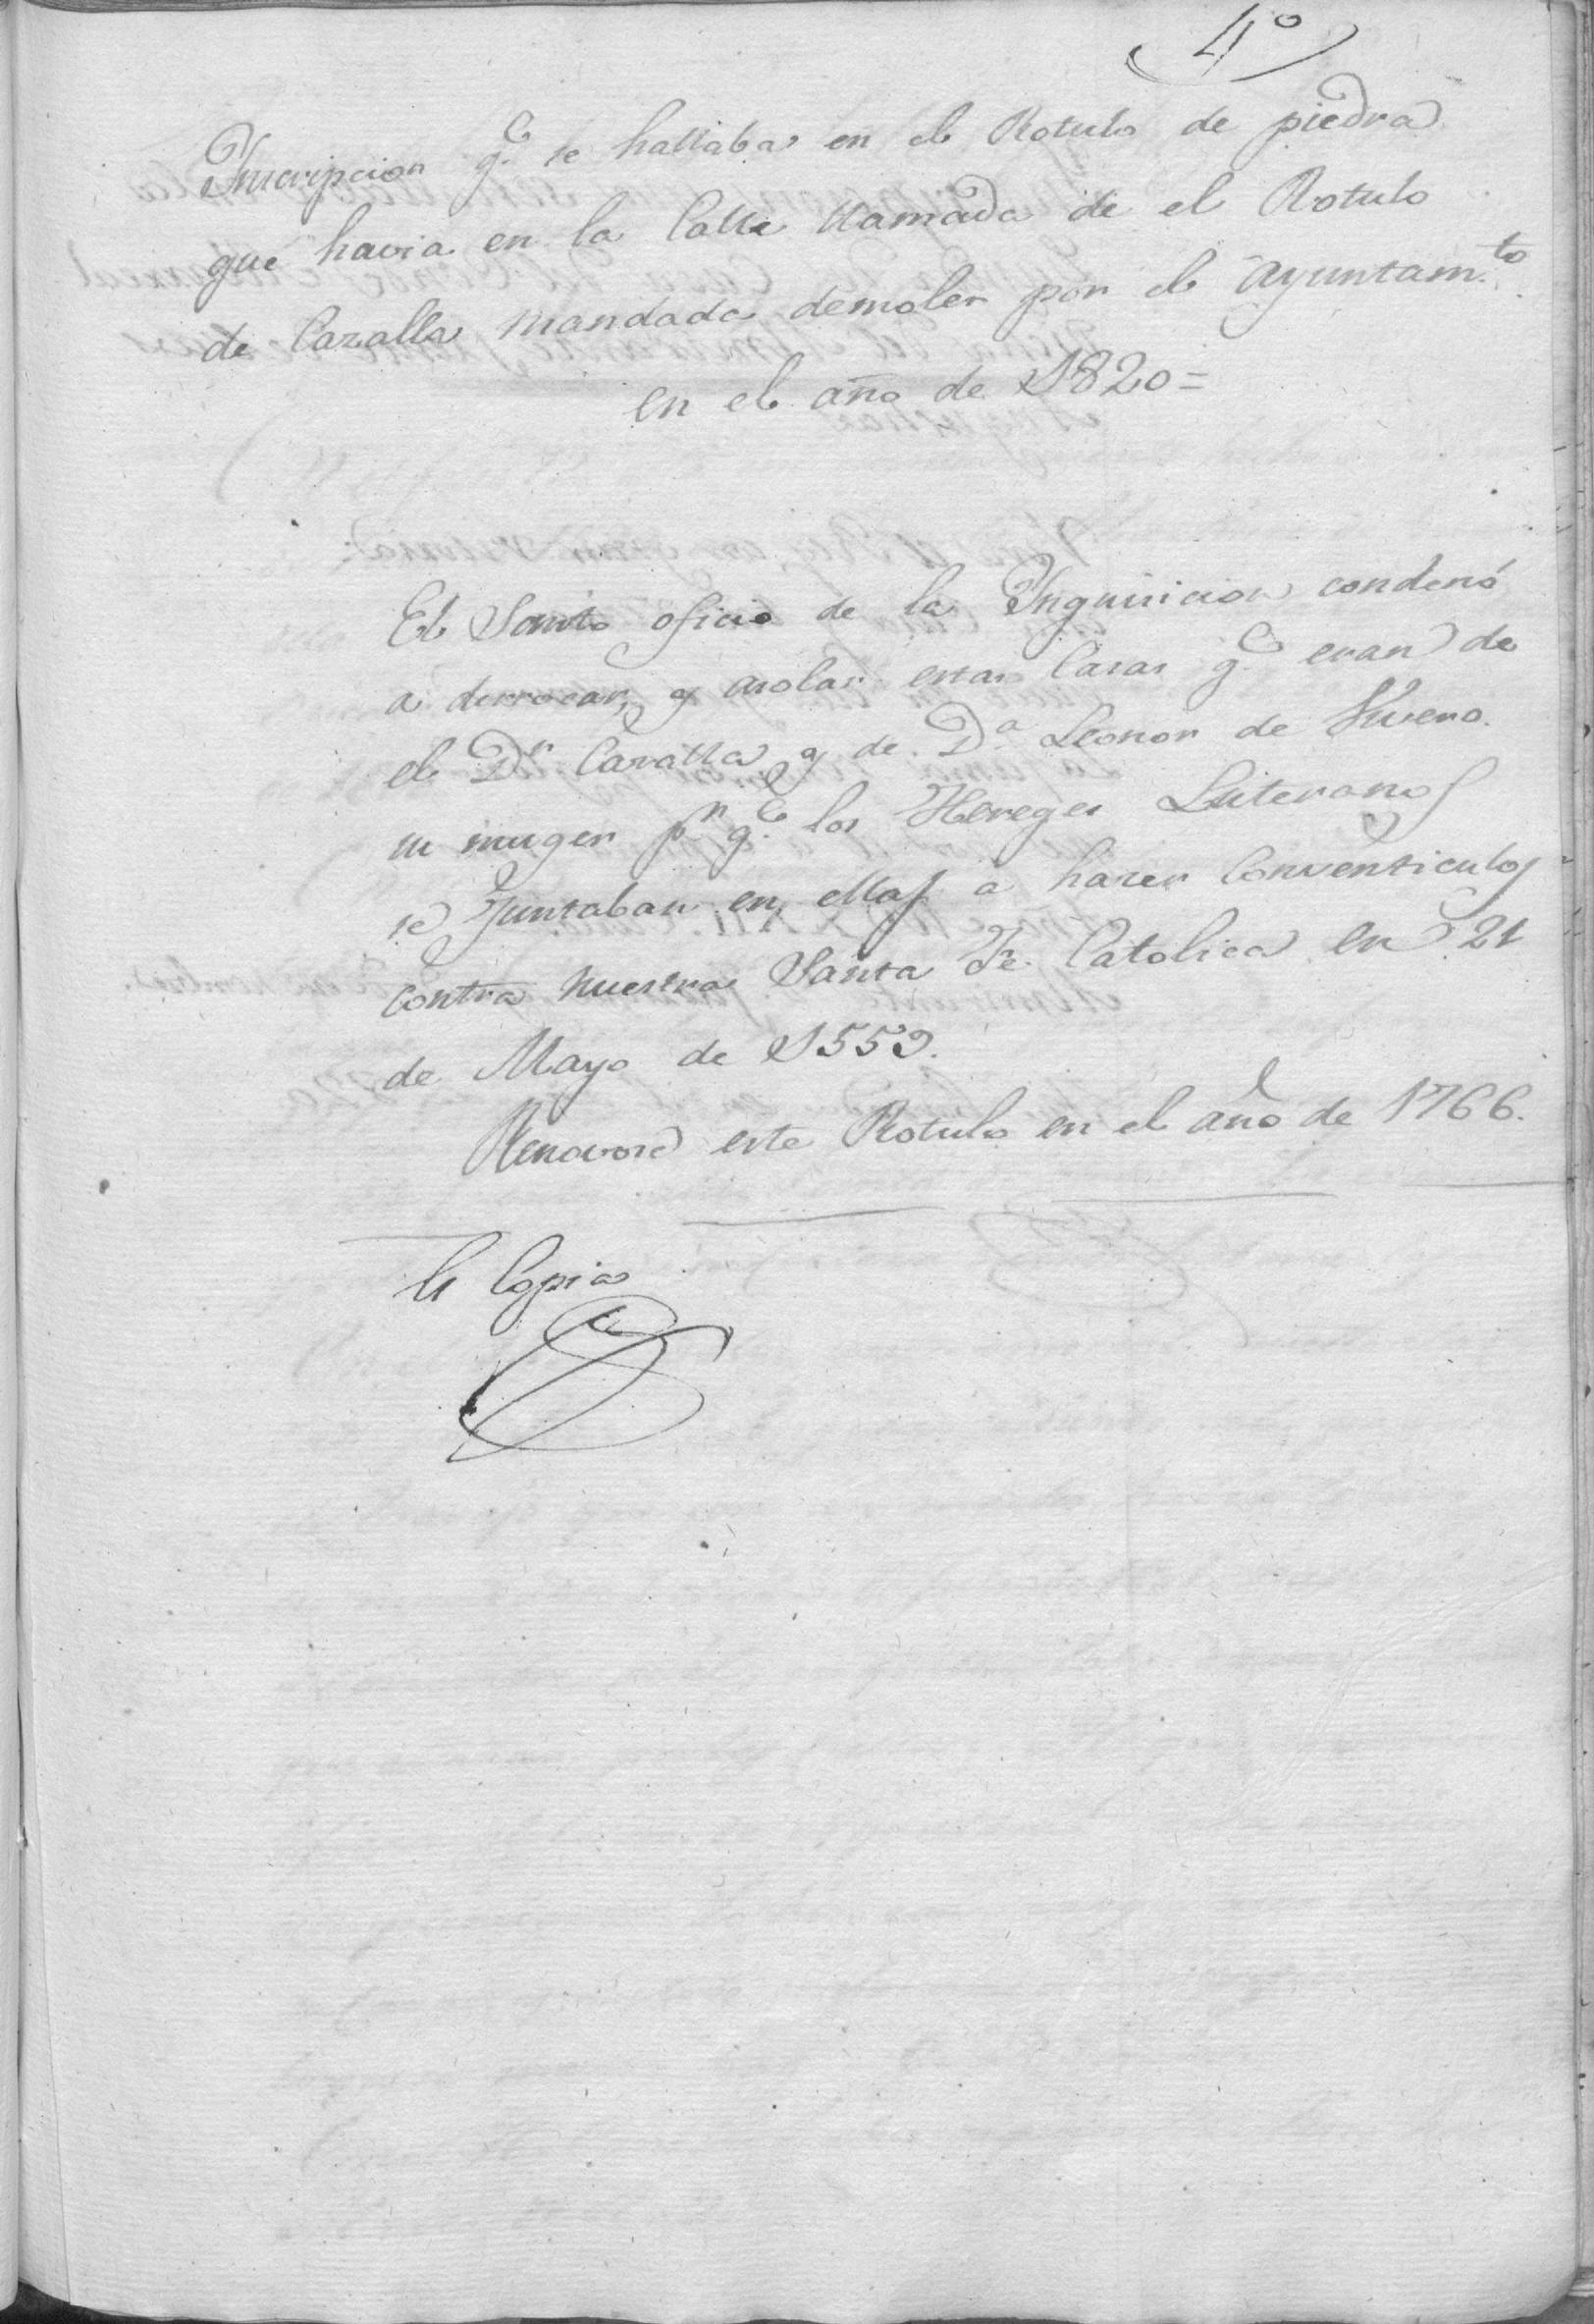 4º
Inscripcion q.e se hallaba en el Rotulo de piedra
que havia en la Calle llamada de el Rotulo
de Cazalla mandada demoler por el ayuntam.to
en el año de 1820=
El Santo oficio de la Inquisicion condenó
a derrocar, y asolar estas Casas q.e eran de
el Dr Cazalla y de D.a Leonor de Vivero
su muger pr q.e los Hereges Luteranos
se Juntaban en ellas a hacer Conventiculos
contra nuestra Santa Fe Catolica en 21
de Mayo de 1559.
Renovose este Rotulo en el año de 1766.
Es Copia